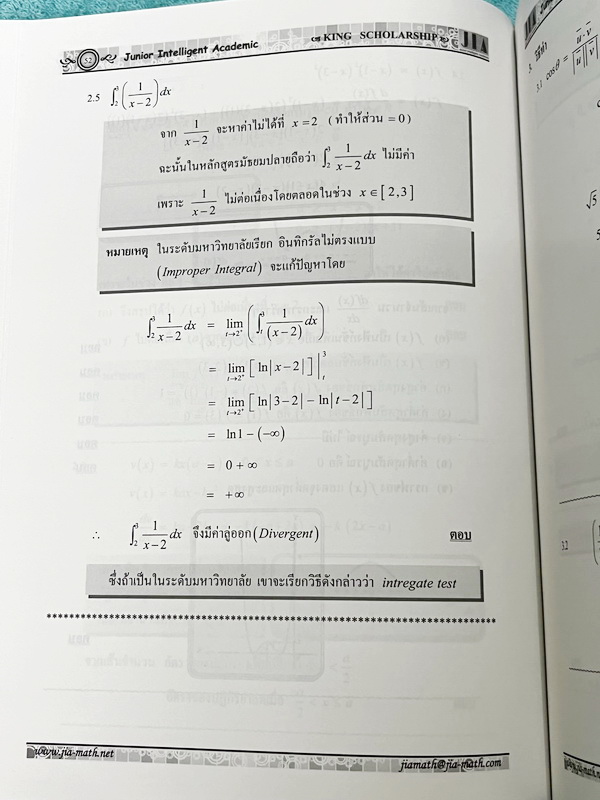 52 Junior Intelligent Academic KING SCHOLARSHIP JIA
2.5 ∫₂³ (1/(x−2)) dx
จาก 1/(x−2) จะหาค่าไม่ได้ที่ x = 2 (ทำให้ส่วน = 0)
ฉะนั้นในหลักสูตรมัธยมปลายถือว่า ∫₂³ 1/(x−2) dx ไม่มีค่า
เพราะ 1/(x−2) ไม่ต่อเนื่องโดยตลอดในช่วง x ∈ [2,3]
หมายเหตุ ในระดับมหาวิทยาลัยเรียก อินทิกรัลไม่ตรงแบบ
(Improper Integral) จะแก้ปัญหาโดย
∫₂³ 1/(x−2) dx = lim t→2⁺ (∫ₜ³ 1/(x−2) dx)
= lim t→2⁺ [ln|x−2|] |ₜ³
= lim t→2⁺ [ln|3−2| − ln|t−2|]
= ln1 − (−∞)
= 0 + ∞
= +∞
∴ ∫₂³ 1/(x−2) dx จึงมีค่าลู่ออก (Divergent) ตอบ
ซึ่งถ้าเป็นในระดับมหาวิทยาลัย เขาจะเรียกวิธีดังกล่าวว่า intregate test
www.jia-math.net
jiamath@jia-math.com
3.
3.1 cosθ =
√5
5
3.2